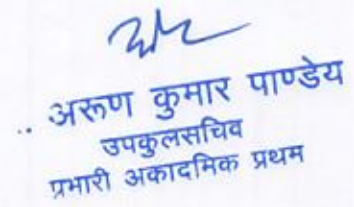 .. अरूण कुमार पाण्डेय
उपकुलसचिव
प्रभारी अकादमिक प्रथम